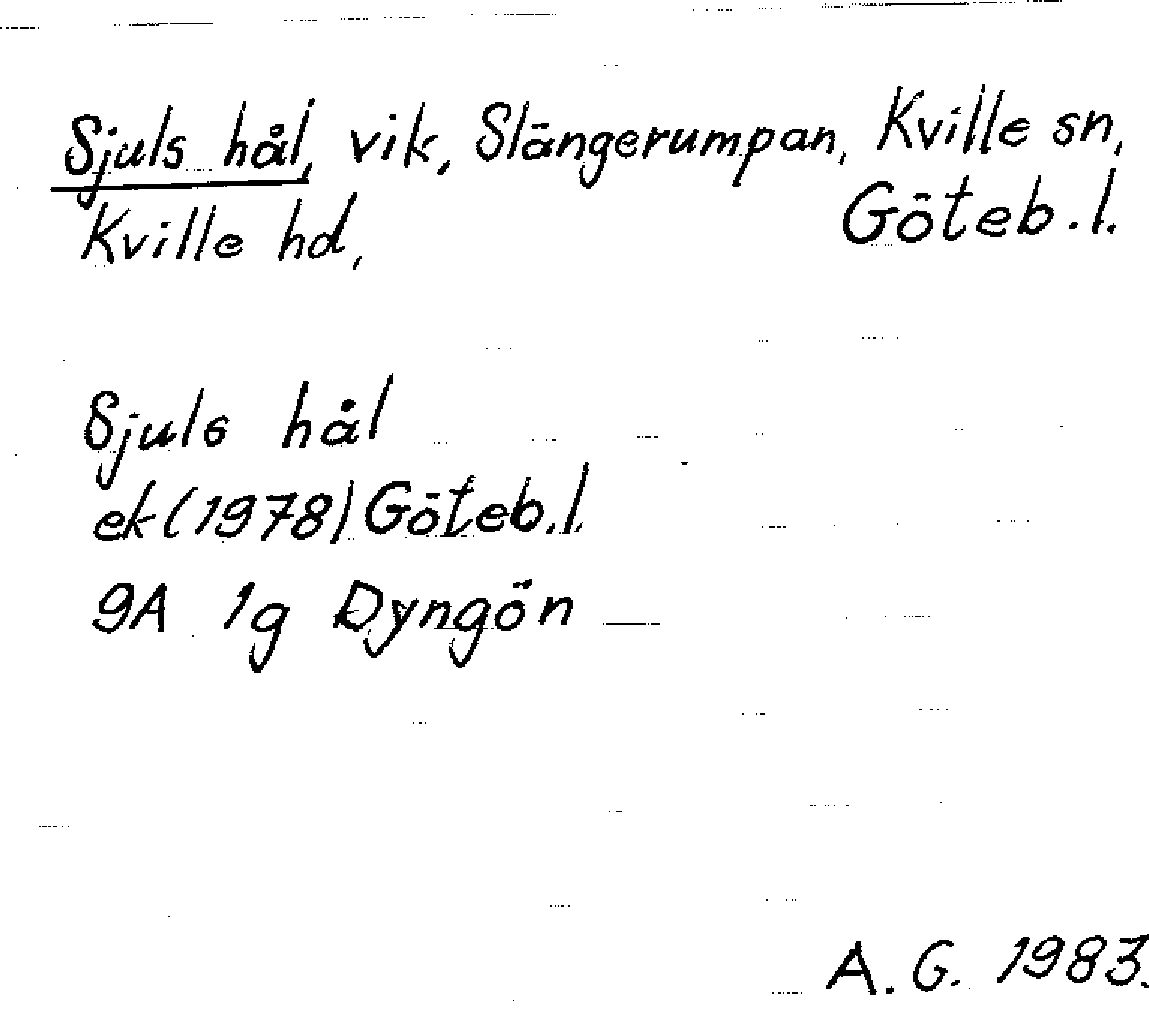 Sjuls hål, vik, Slängerumpan, Kville sn,
Kville hd, Göteb.l.
Sjuls hål
ek (1978) Göteb.l.
9A 1g Dyngön
A.G. 1983.